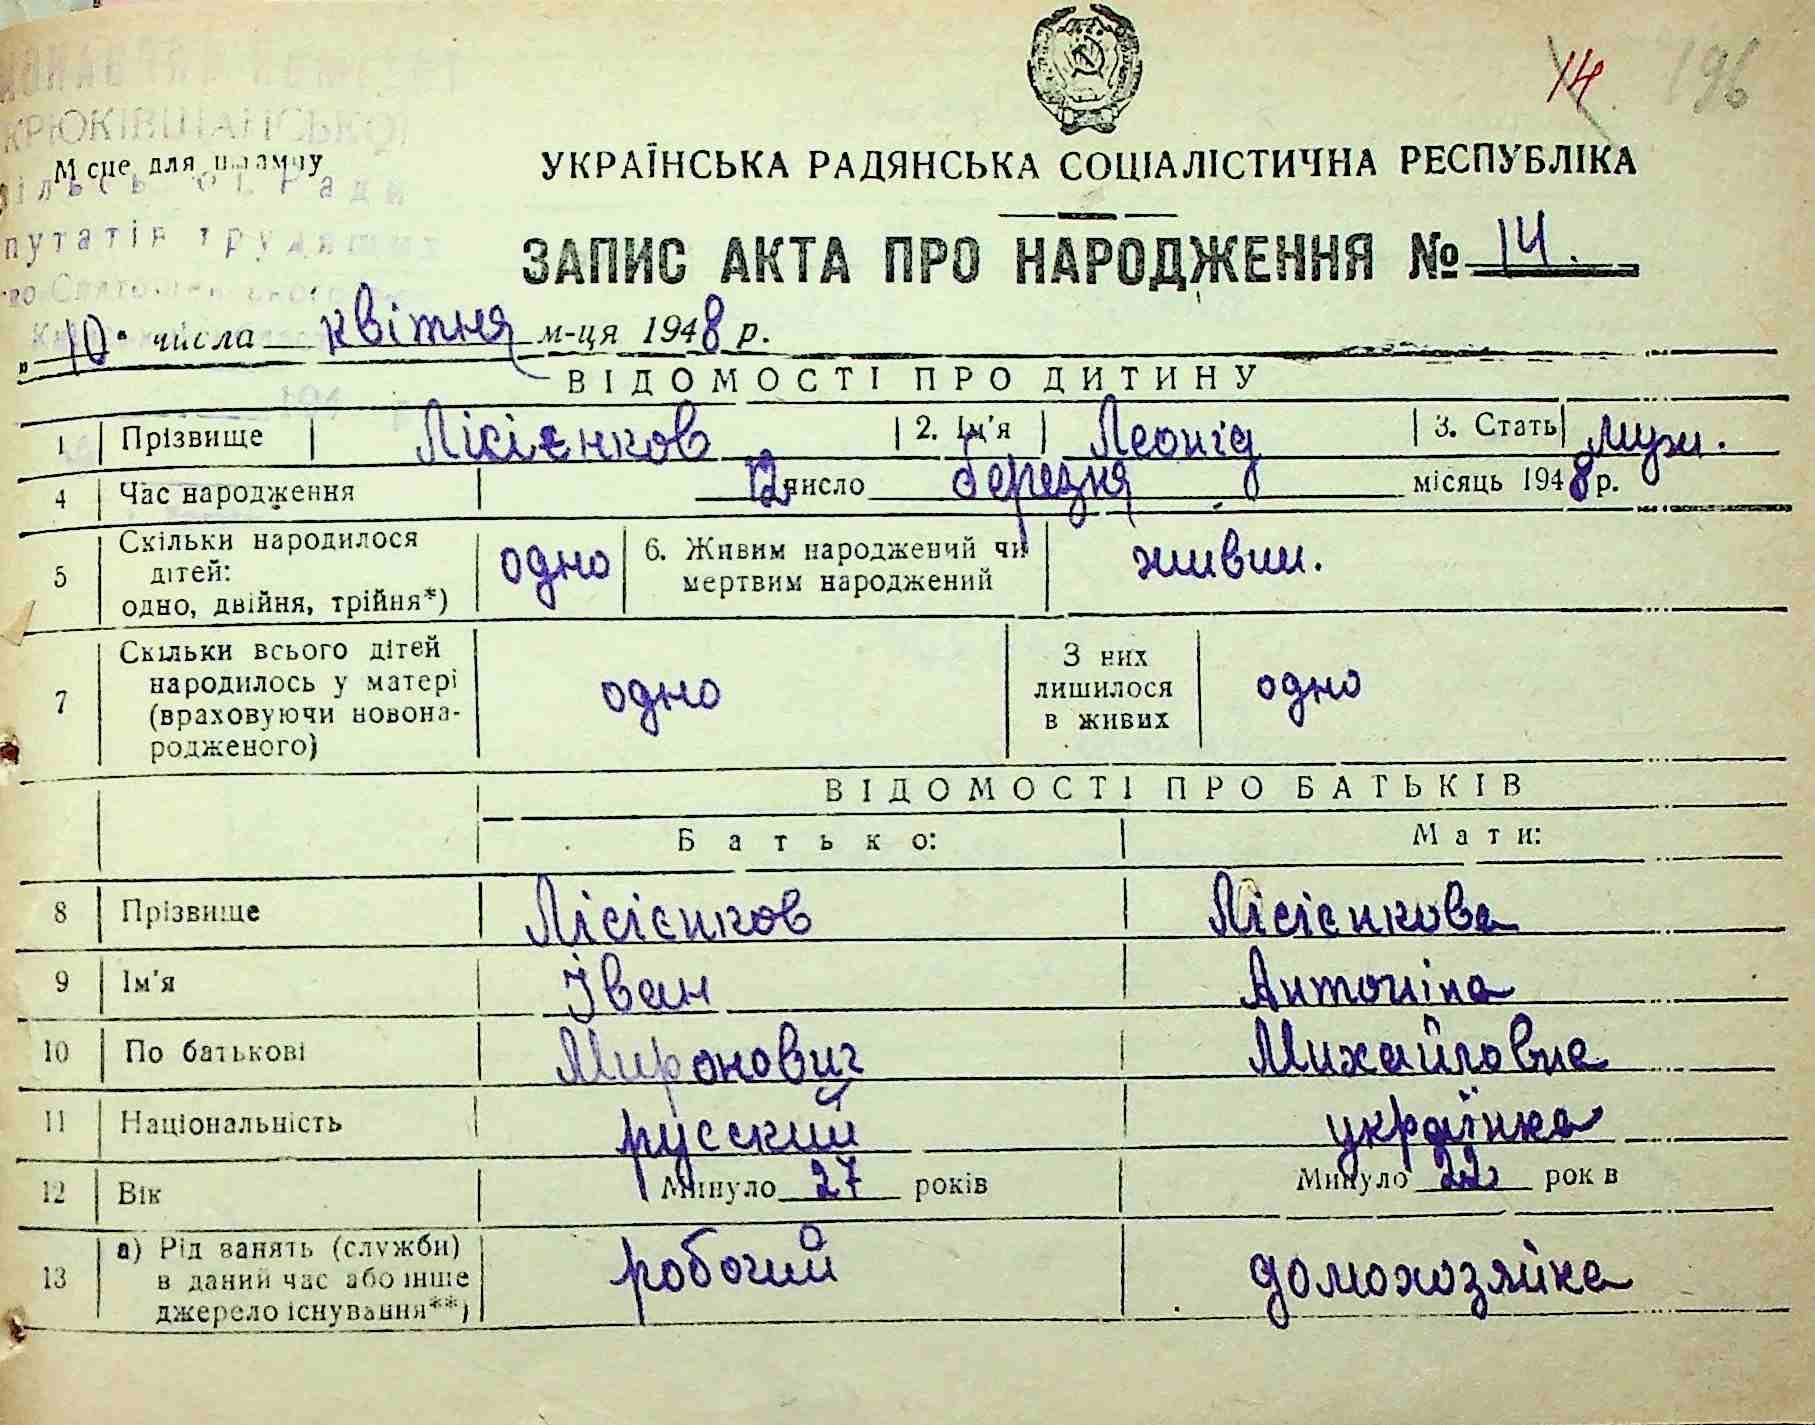 14. 196
КРЮКІВЩАНСЬКОЇ
Місце для штампу
Ради
путатів трудящих
УКРАЇНСЬКА РАДЯНСЬКА СОЦІАЛІСТИЧНА РЕСПУБЛІКА
ЗАПИС АКТА ПРО НАРОДЖЕННЯ № 14.
„10" числа квітня м-ця 1948 р.
ВІДОМОСТІ ПРО ДИТИНУ
1 Прізвище Лісієнков 2. Ім'я Леонід 3. Стать муж.
4 Час народження 12 число березня місяць 1948 р.
5 Скільки народилося
дітей:
одно, двійня, трійня*)
одно
6. Живим народжений чи
мертвим народжений
живим.
7 Скільки всього дітей
народилось у матері
(враховуючи новона-
родженого)
одно
З них
лишилося
в живих
одно
ВІДОМОСТІ ПРО БАТЬКІВ
Батько: Мати:
8 Прізвище Лісієнков Лісієнкова
9 Ім'я Іван Антоніна
10 По батькові Миронович Михайловна
11 Національність русский українка
12 Вік Минуло 27 років Минуло 22 рок в
13 а) Рід занять (служби)
в даний час або інше
джерело існування**)
робочий домохозяйка